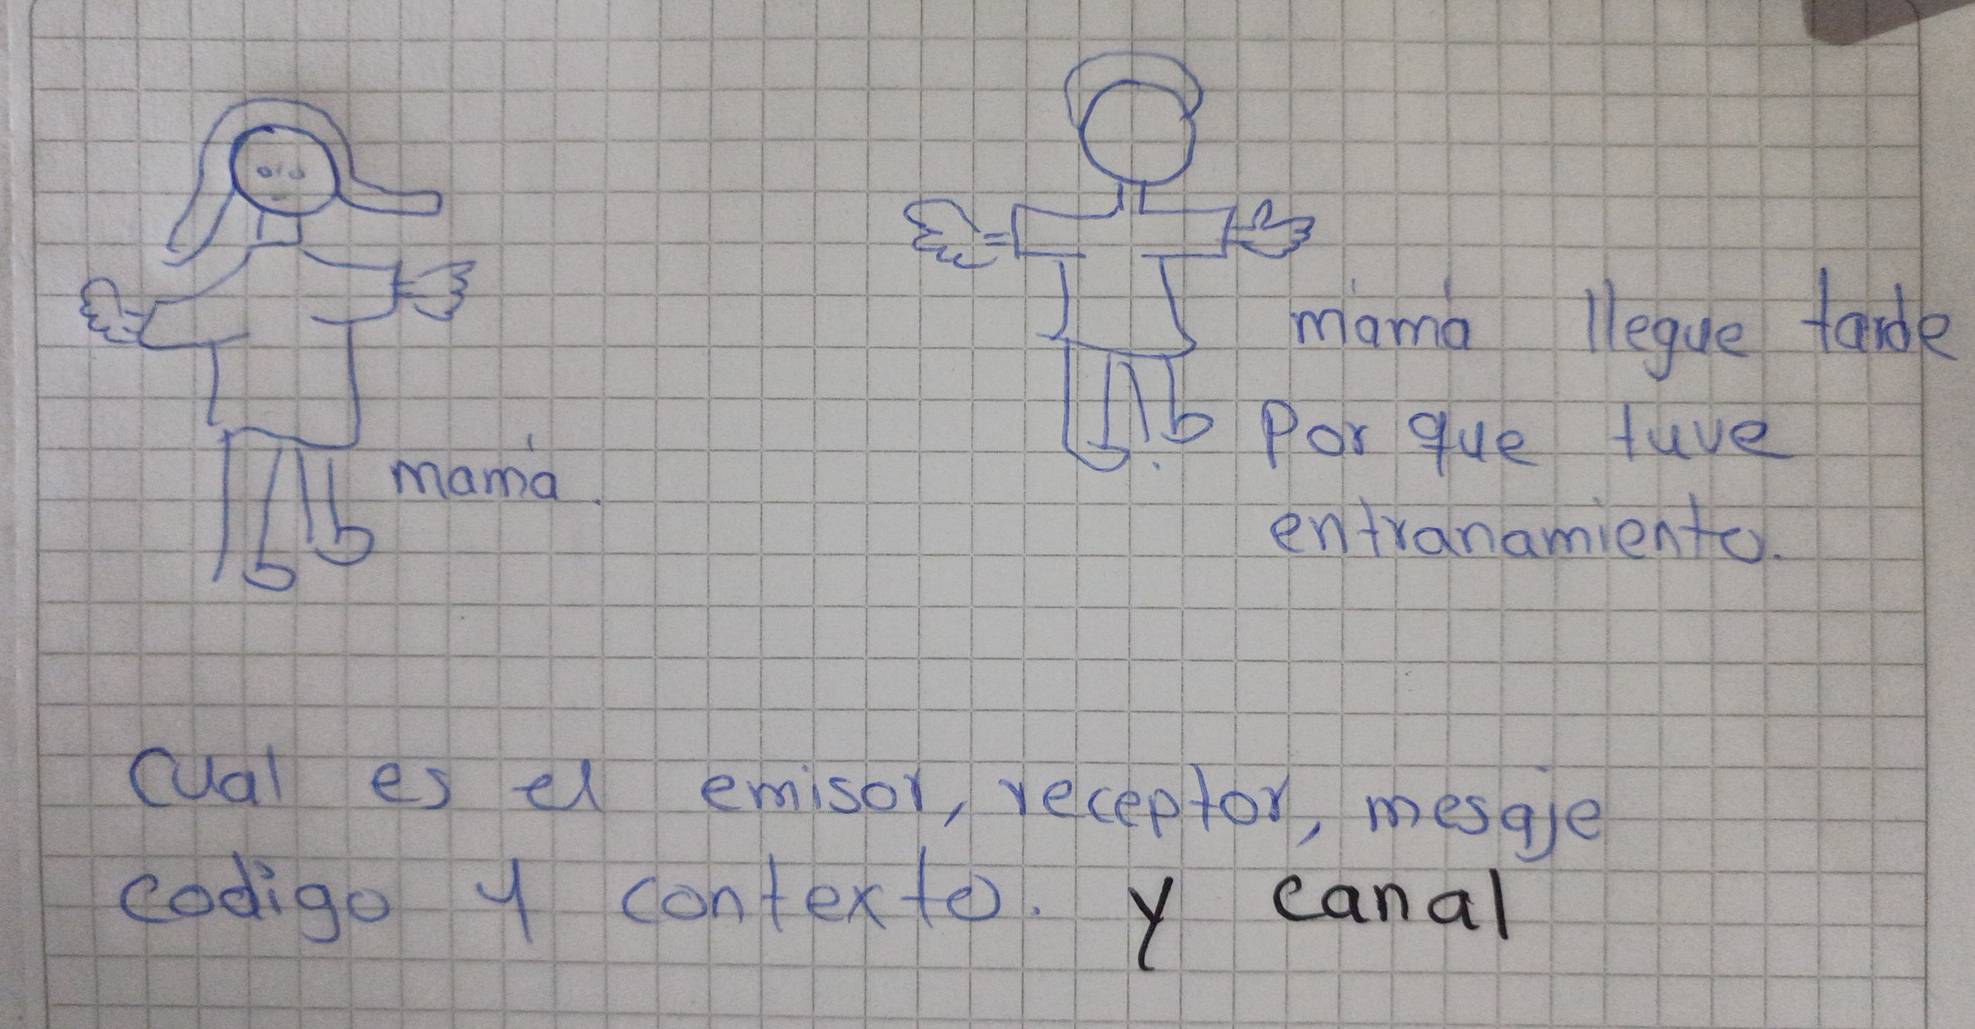 mamá llegue tarde
Por que tuve
mamá.
entranamiento.
Cual es el emisor, receptor, mesaje
codigo y contexto. y canal